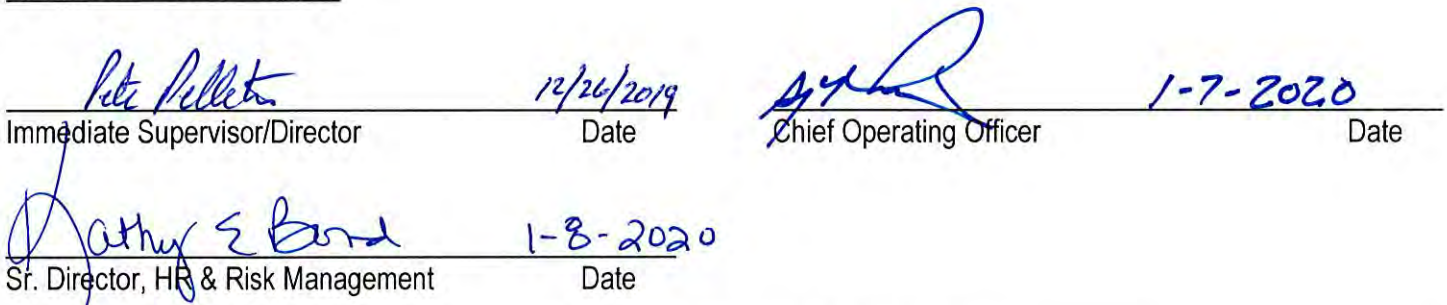 Pete Pelletier 12/26/2019 1-7-2020
Immediate Supervisor/Director Date Chief Operating Officer Date
Kathy E Bond 1-8-2020
Sr. Director, HR & Risk Management Date